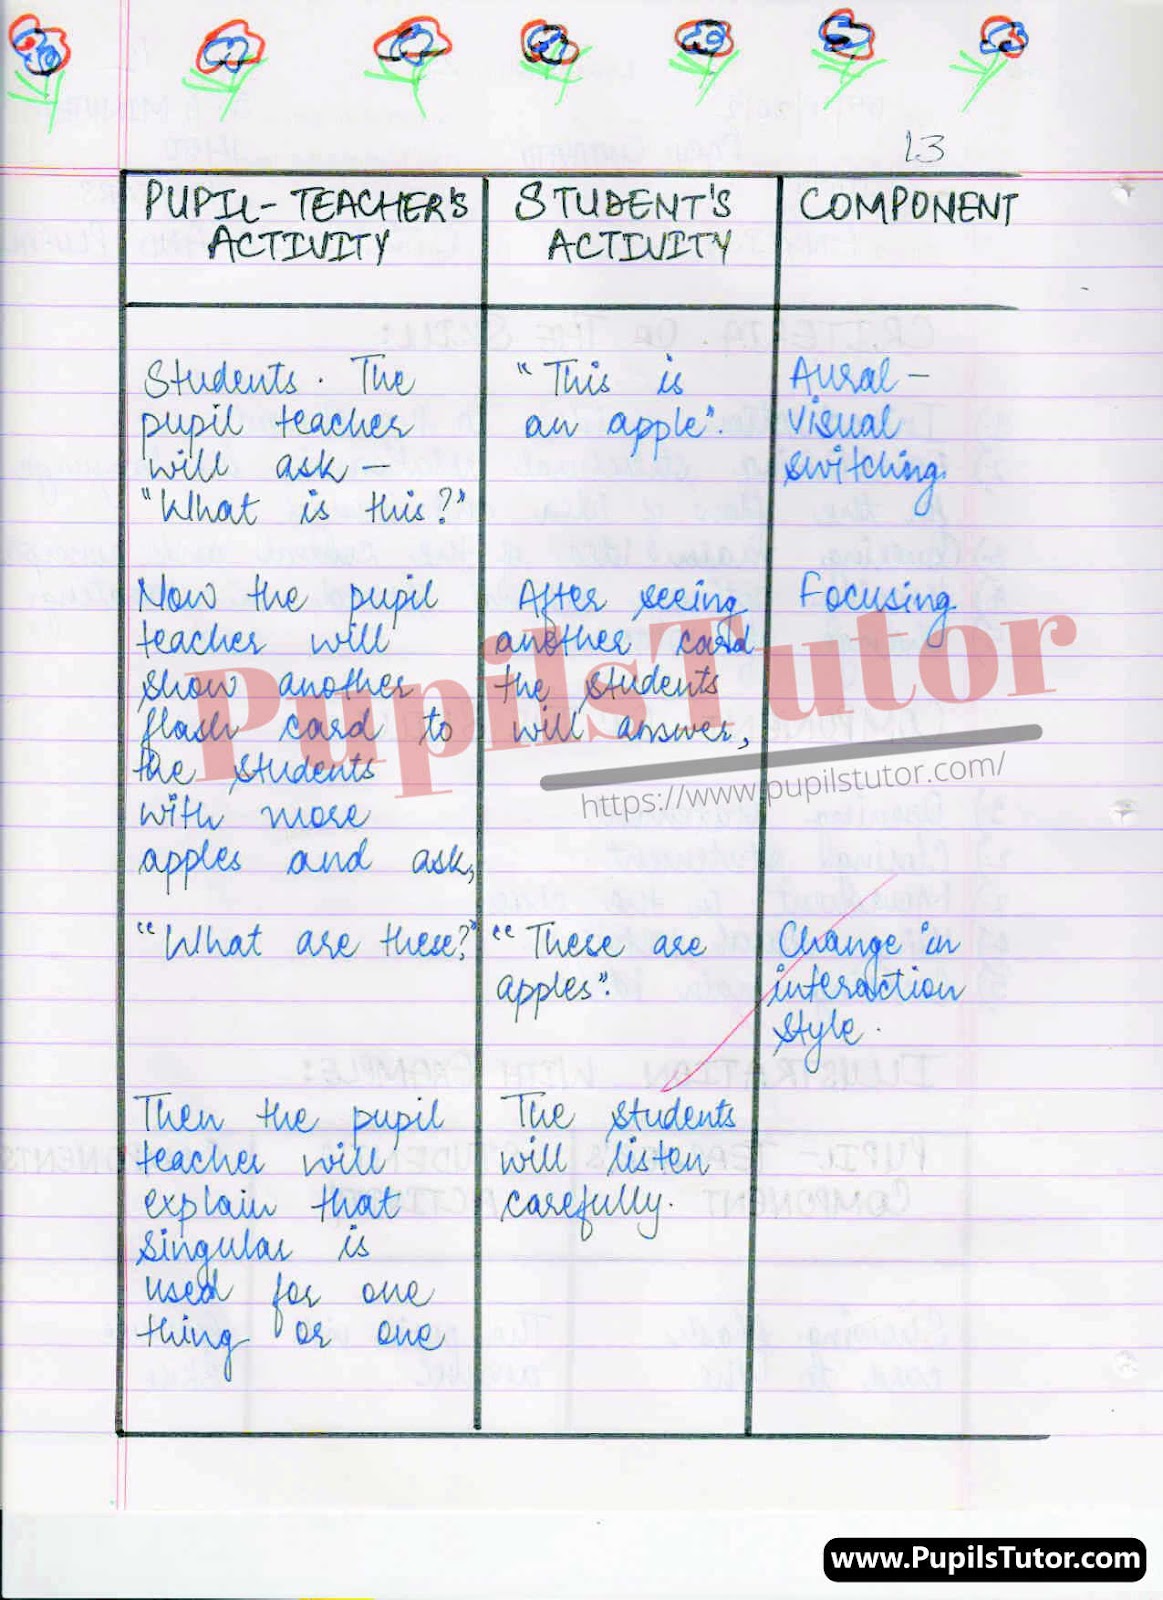 13
PUPIL-TEACHER'S
ACTIVITY
STUDENT'S
ACTIVITY
COMPONENT
Students. The
pupil teacher
will ask –
"What is this?"
"This is
an apple".
Aural –
visual
switching.
Now the pupil
teacher will
show another
flash card to
the students
with more
apples and ask,
After seeing
another card
the students
will answer,
Focusing
"What are these?"
"These are
apples".
Change in
interaction
style.
Then the pupil
teacher will
explain that
singular is
used for one
thing or one
The students
will listen
carefully.
PupilsTutor
https://www.pupilstutor.com/
www.PupilsTutor.com